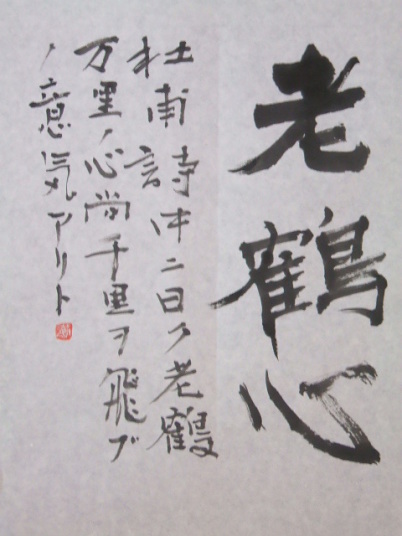 老鶴心
杜甫詩中ニ曰ク老鶴
万里ノ心尚千里ヲ飛ブ
ノ意気アリト